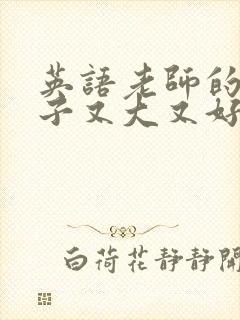 英語老師的
子又大又好
白荷花靜靜開